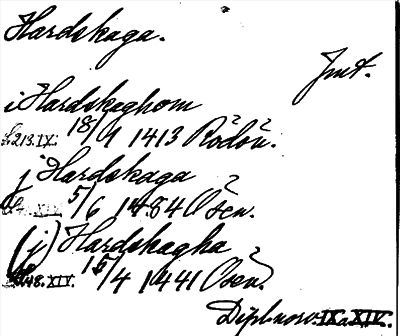 Hardskaga.
Jmt.
i Hardskaghom
213.IV. 18/9 1413 Rödön.
j Hardskaga
5/6 1484 Osen.
(j) Hardskagha
48.XIV. 15/4 1441 Osen.
Dipl. norv. IX. XIV.